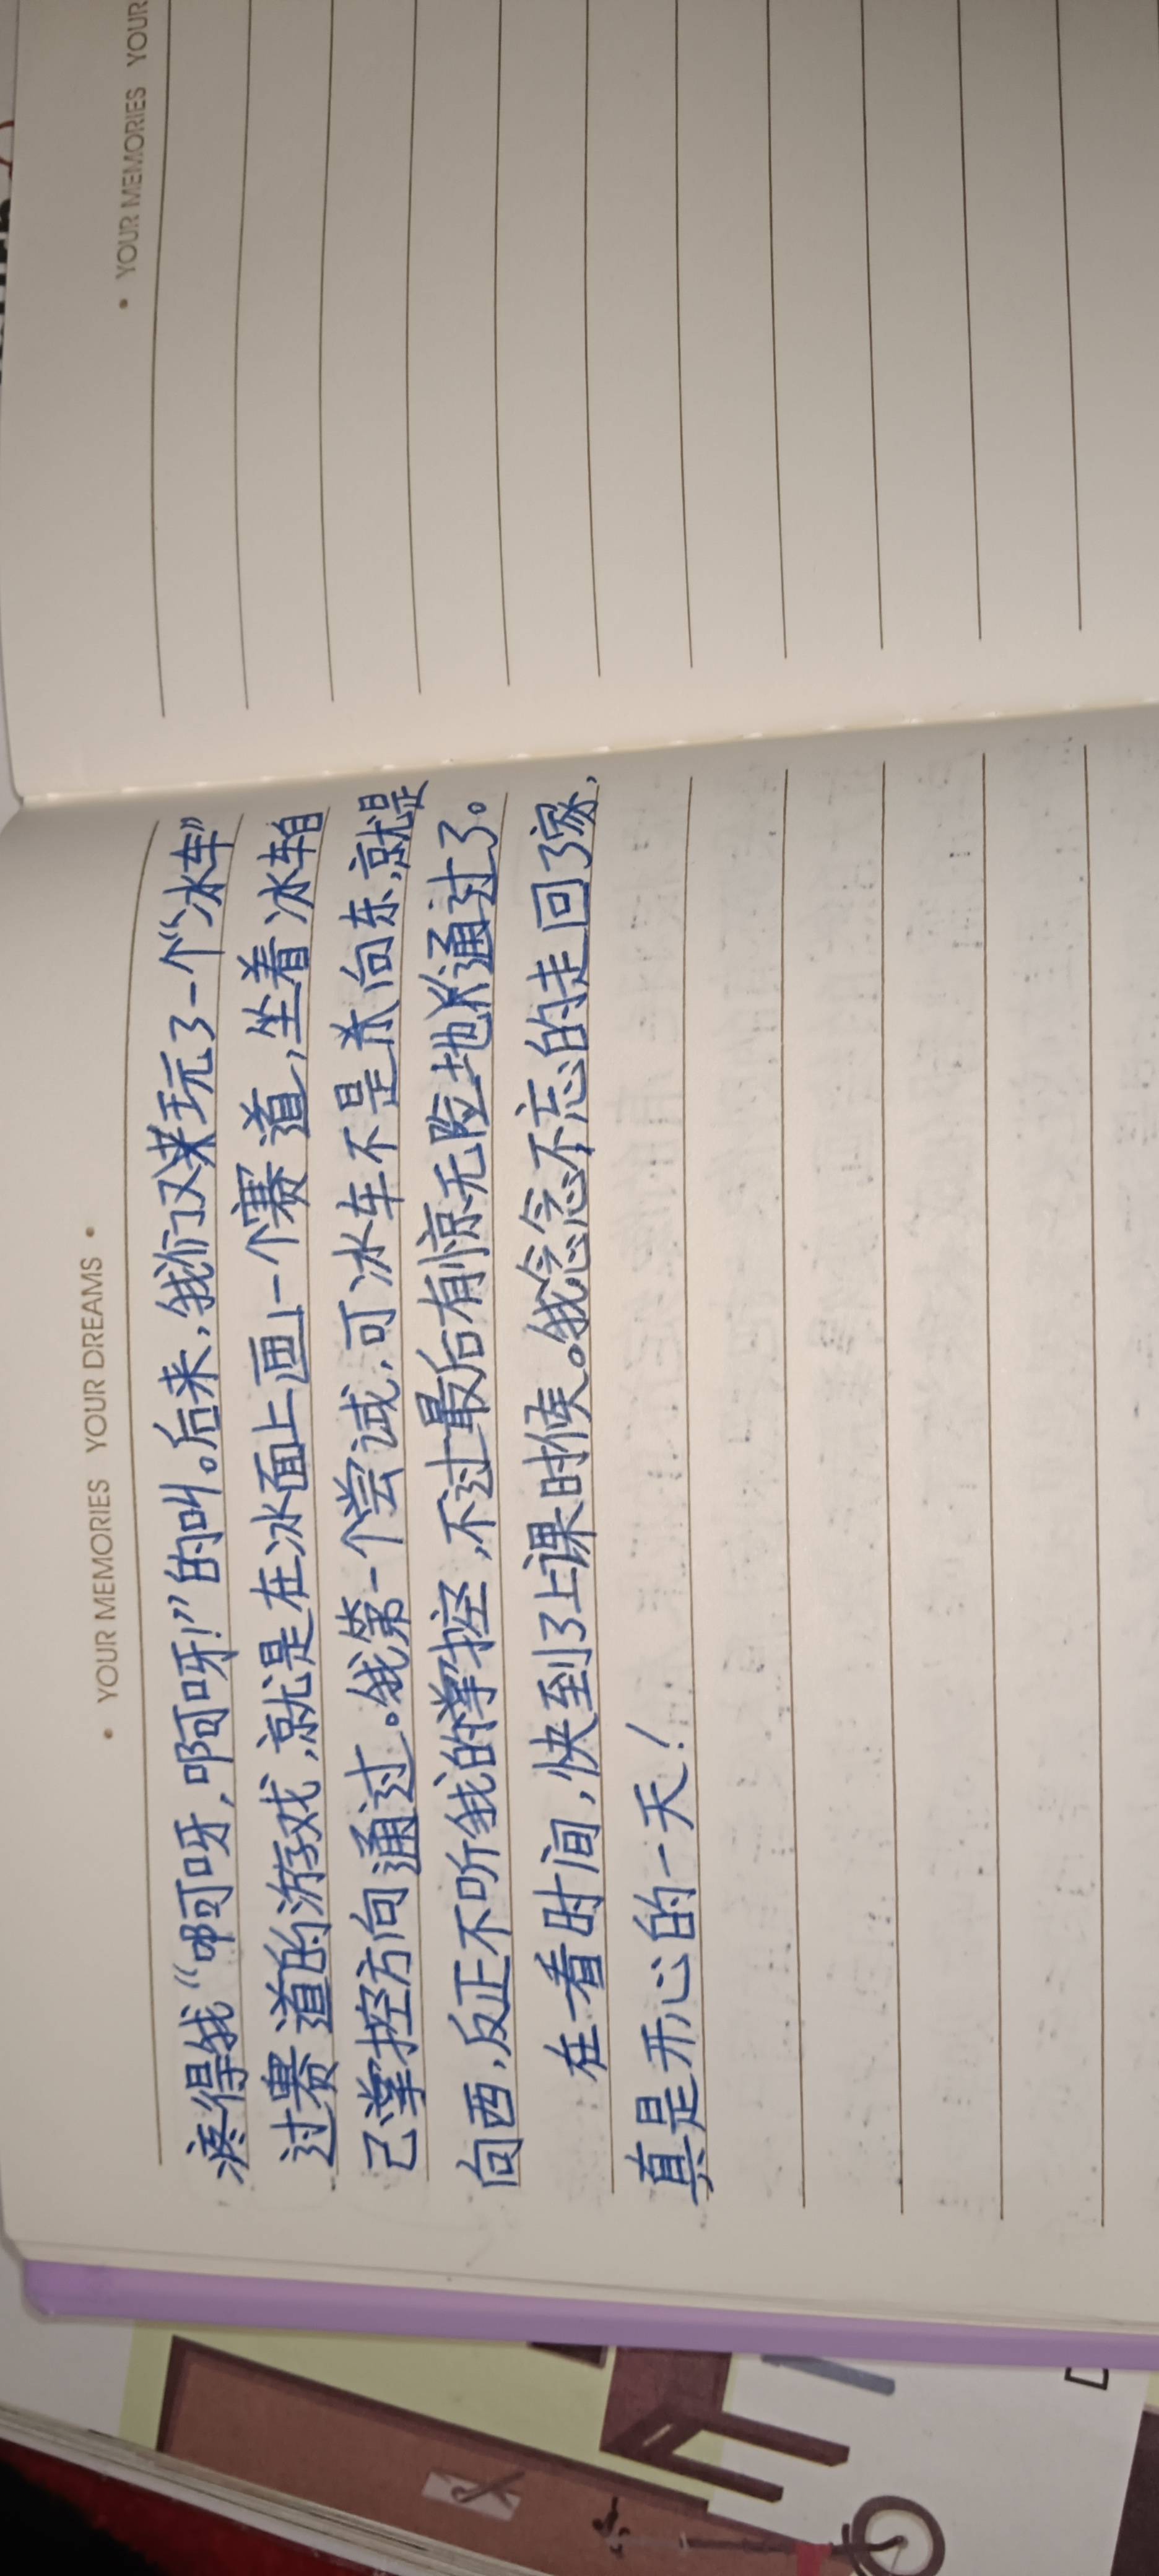 • YOUR MEMORIES YOUR DREAMS •
疼得我“啊呀,啊呀!”的叫。后来,我们又来玩了一个“冰车”
过赛道的游戏,就是在冰面上画上一个赛道,坐着冰车自
己掌控方向通过。我第一个尝试,可冰车不是向东,就是
向西,反正不听我的掌控,不过最后有惊无险地通过了。
在一看时间,快到了上课时候。我念念不忘的走回了家,
真是开心的一天!
• YOUR MEMORIES YOUR